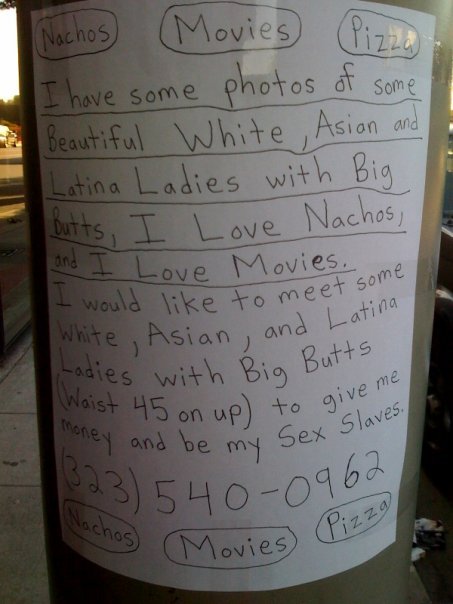 Nachos Movies Pizza
I have some photos of some
Beautiful White, Asian and
Latina Ladies with Big
Butts, I Love Nachos,
and I Love Movies.
I would like to meet some
White, Asian, and Latina
Ladies with Big Butts
(Waist 45 on up) to give me
money and be my Sex Slaves.
(323) 540-0962
Nachos Movies Pizza